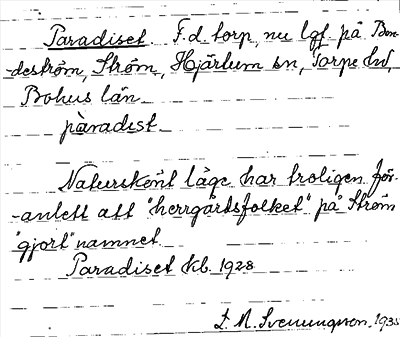 Paradiset. F.d. torp, nu lgf på Bon-
deström, Ström, Hjärtum sn, Torpe hd,
Bohus län
pàradist
Naturskönt läge har troligen för-
anlett att "herrgårdsfolket" på Ström
"gjort" namnet.
Paradiset kb. 1928
L. M. Svenungsson, 1935